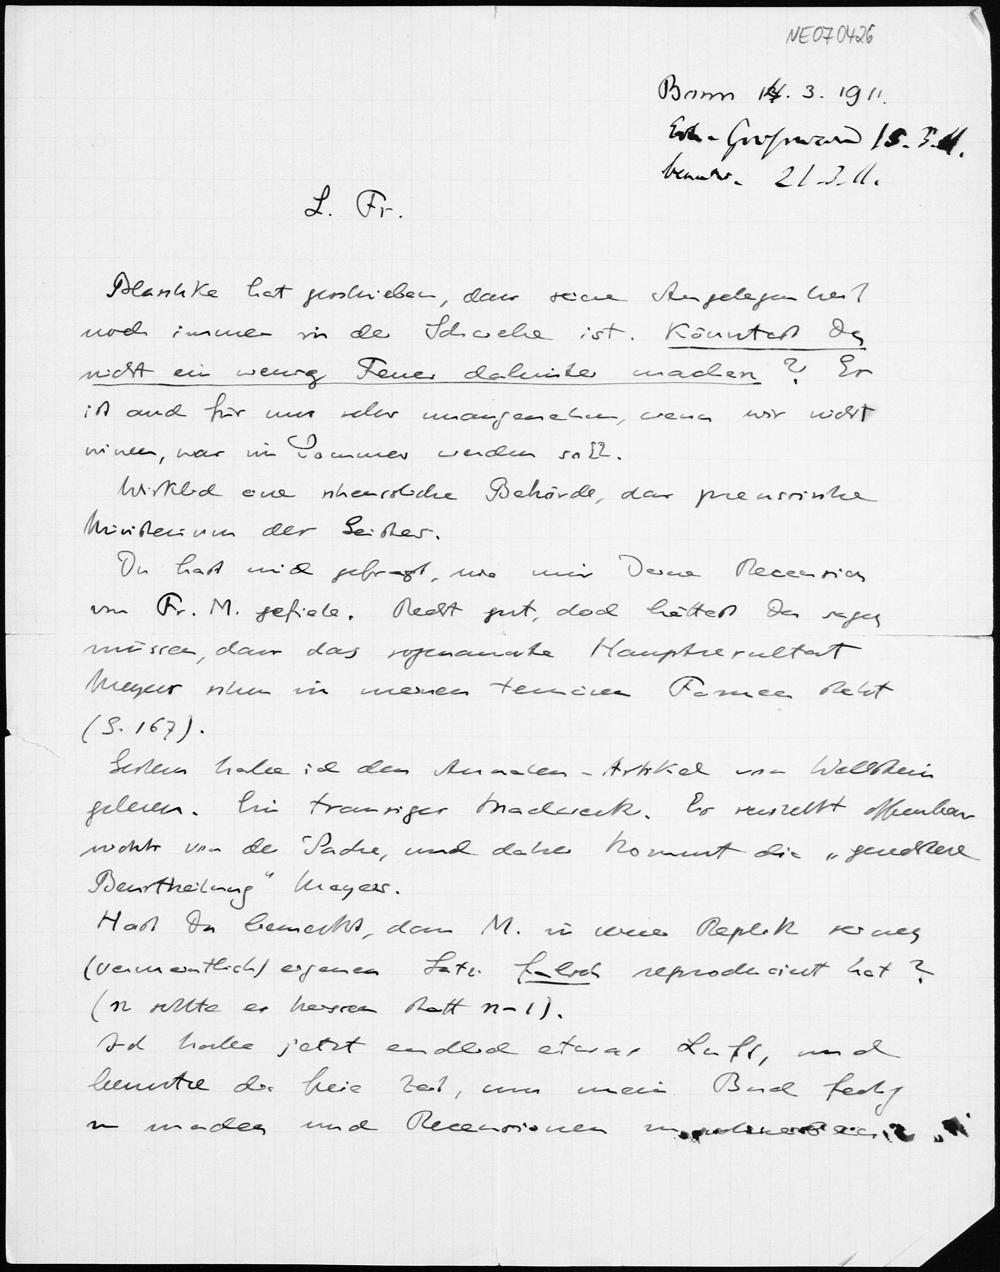 NE070426
Bonn 14. 3. 1911.
Erh. Greifswald 15.3.11.
beantw. 21.3.11.
L. Fr.
Blaschke hat geschrieben, dass seine Angelegenheit
noch immer in der Schwebe ist. Könntest Du
nicht ein wenig Feuer dahinter machen? Es
ist auch für uns sehr unangenehm, wenn wir nicht
wissen, was im Sommer werden soll.
Wirklich eine scheussliche Behörde, das preussische
Ministerium der Geister.
Du hast mich gefragt, wie mir Deine Recension
von Fr. M. gefiele. Recht gut, doch hättest Du sagen
müssen, dass das sogenannte Hauptresultat
Meyers schon in meinen ternären Formen steht
(S. 167).
Gestern habe ich den Annalen-Artikel von Wellstein
gelesen. Ein trauriger Machwerk. Er versteht offenbar
nichts von der Sache, und daher kommt die „gerechtere
Beurtheilung" Meyers.
Hast Du bemerkt, dass M. in seiner Replik seinen
(vermeintlich) eigenen Satz falsch reproducirt hat?
(n sollte es heissen statt n-1).
Ich habe jetzt endlich etwas Luft, und
benutze die freie Zeit, um mein Buch fertig
zu machen und Recensionen zu